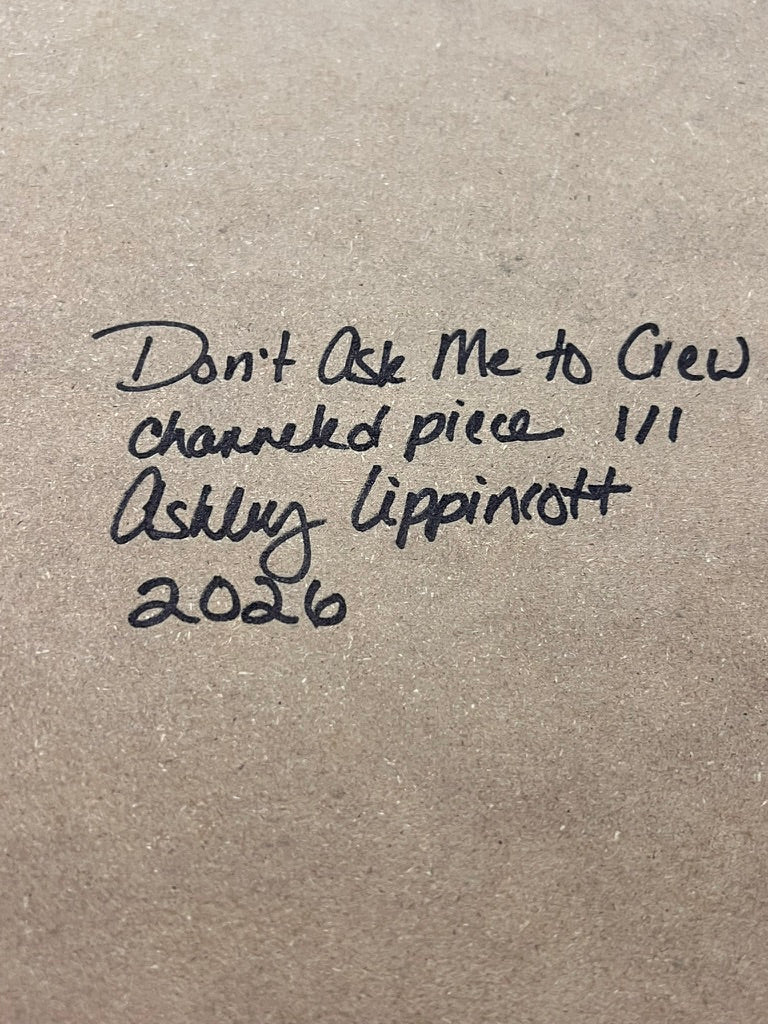 Don't Ask Me to Crew
channeled piece 1/1
Ashley Lippincott
2026